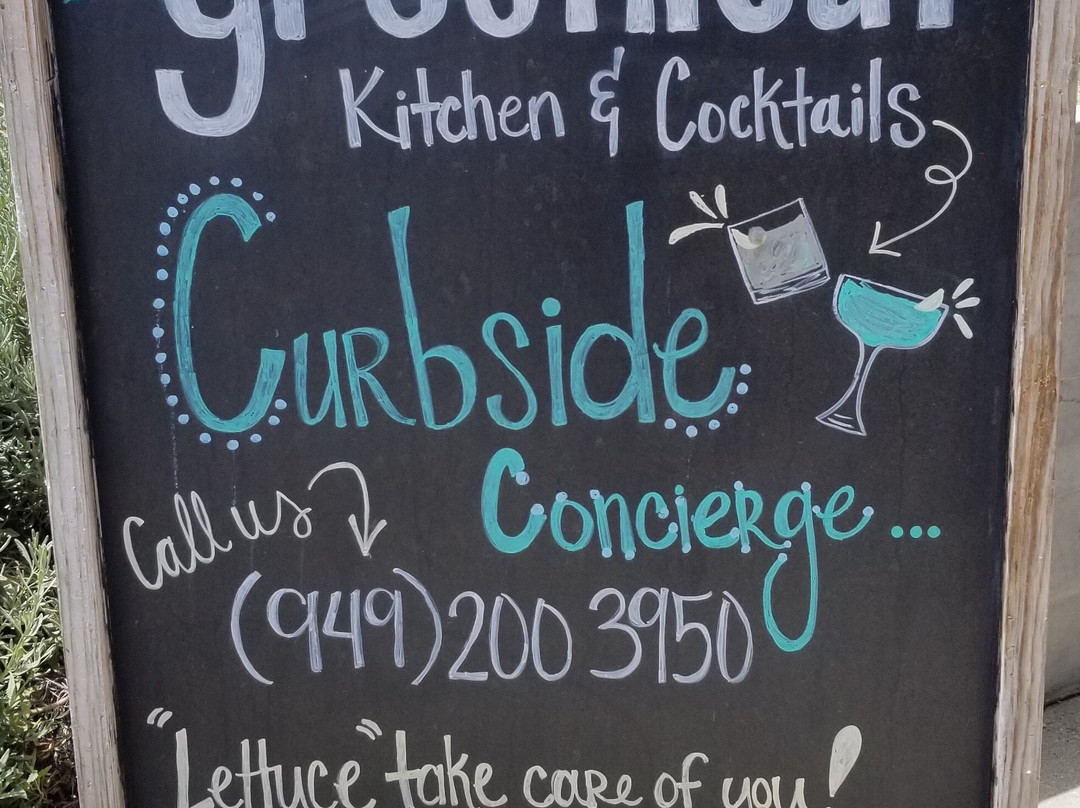 Kitchen & Cocktails
Curbside
Concierge...
Call us
(949) 200 3950
"Lettuce" take care of you!